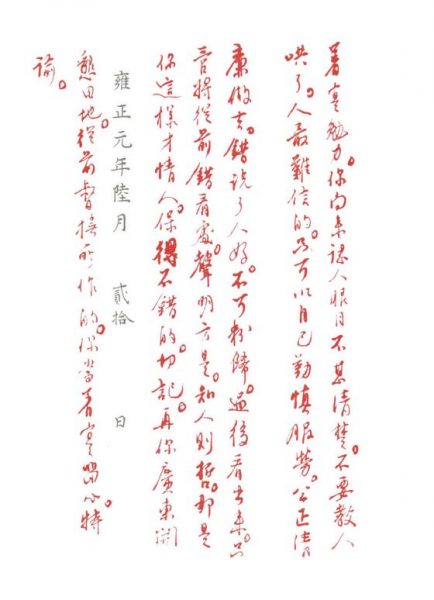 著實勉力。你向來認人眼目不甚清楚。不要教人
哄了。人最難信的。只可以自己勤慎服勞。公正清
廉做去。錯說了人好。不可粉飾。過後看出來。只
管將從前錯看處。聲明方是。知人則哲。却是
你這樣才情人。保得不錯的。切記。再你廣東開
雍正元年陸月 貳拾 日
墾田地。從前督撫所作的。你當著實留心。特
諭。